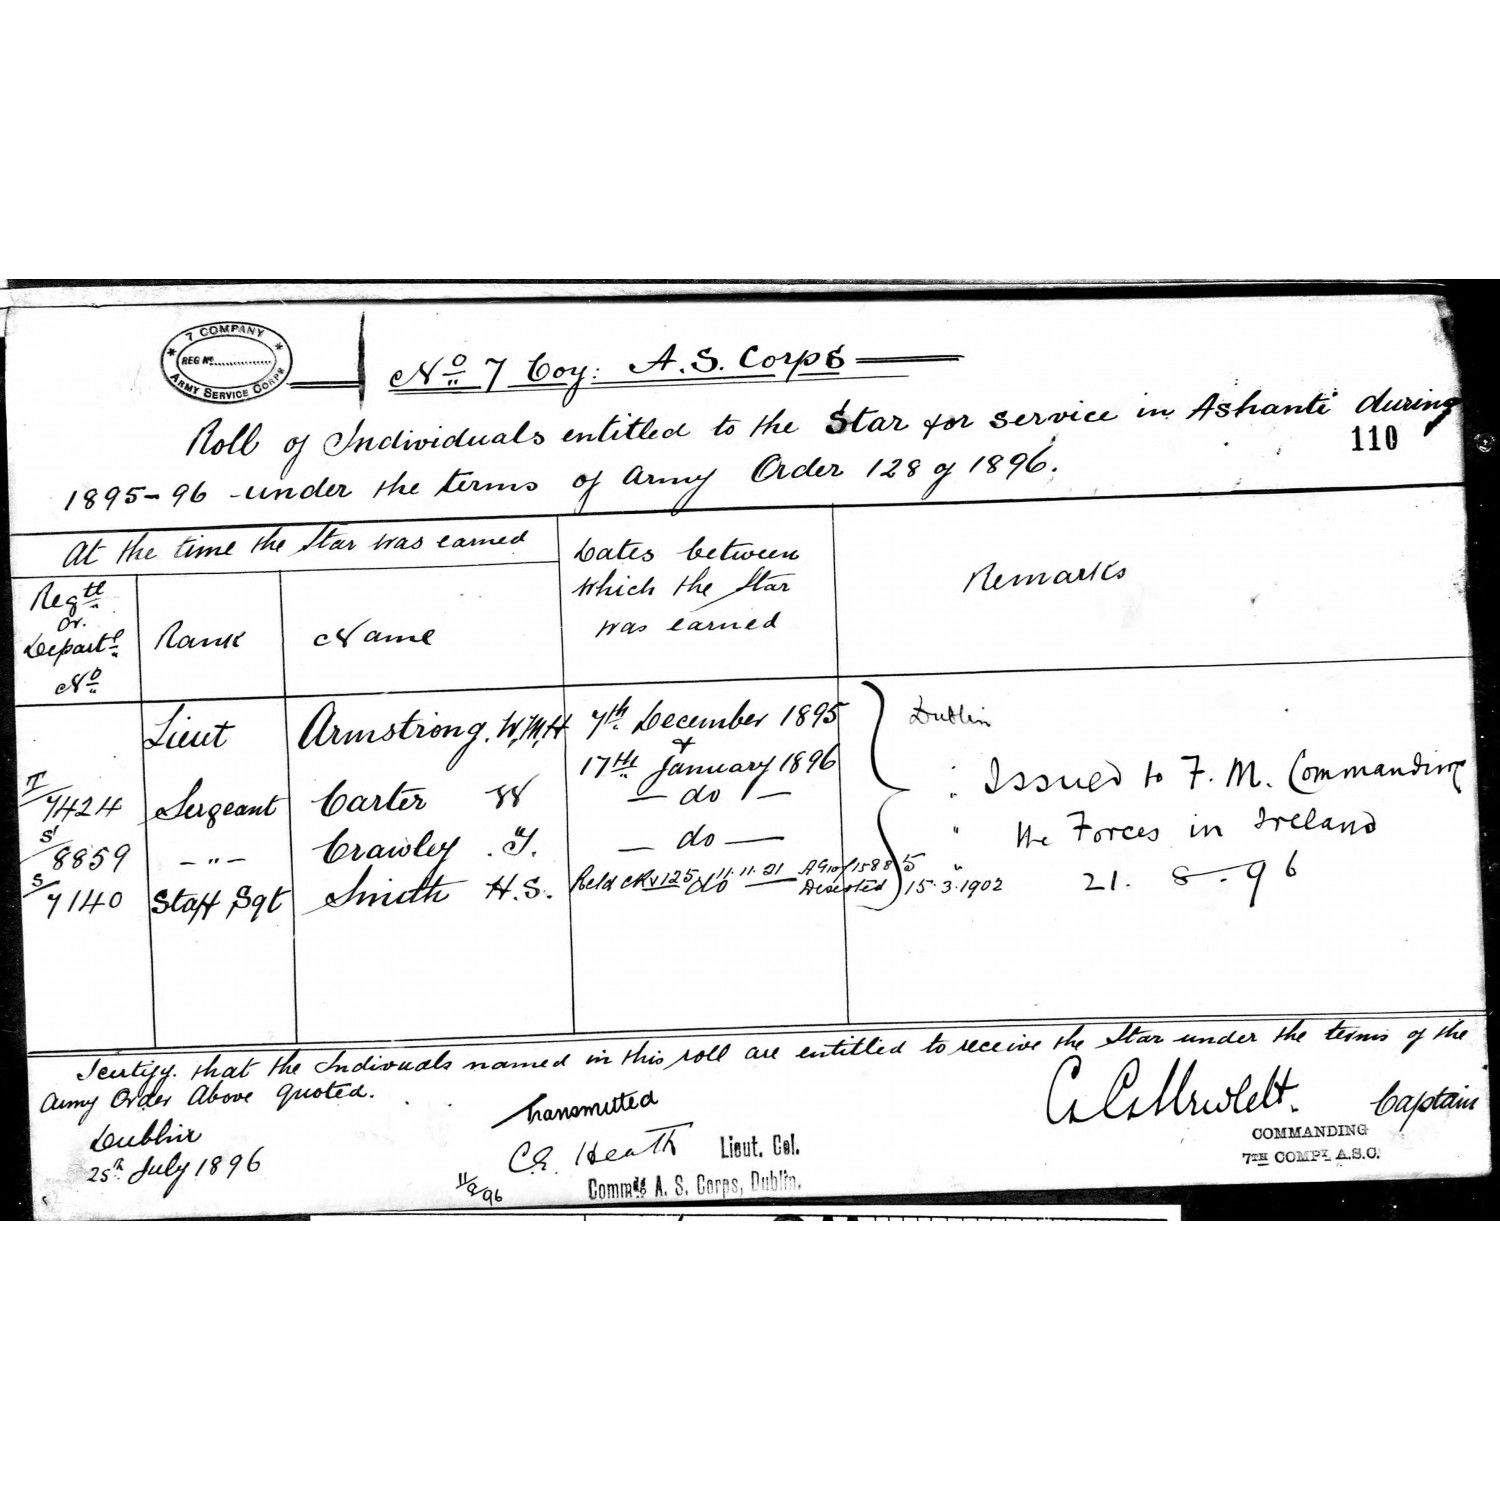 7 COMPANY
REG No.
ARMY SERVICE CORPS
No 7 Coy: A.S. Corps
Roll of Individuals entitled to the Star for service in Ashanti during
110
1895-96 under the terms of Army Order 128 of 1896.
At the time the Star was earned
Regtl or Departl No
Rank
Name
Dates between which the Star was earned
Remarks
Lieut Armstrong, W.M.H 7th December 1895 Dublin
& 17th January 1896
T/7424 Sergeant Carter W — do — " Issued to F. M. Commanding
S/8859 — " — Crawley .T. — do — " the Forces in Ireland
S/7140 Staff Sgt Smith H.S. — do — " 21. 8. 96
11.11.01
Deserted 15.3.1902
I certify that the Indivuals named in this roll are entitled to receive the Star under the terms of the
Army Order Above quoted.
Dublin
25th July 1896
Transmitted
Heath Lieut. Col.
Commdg A. S. Corps, Dublin.
96
Captain
COMMANDING
7TH COMPY. A.S.C.